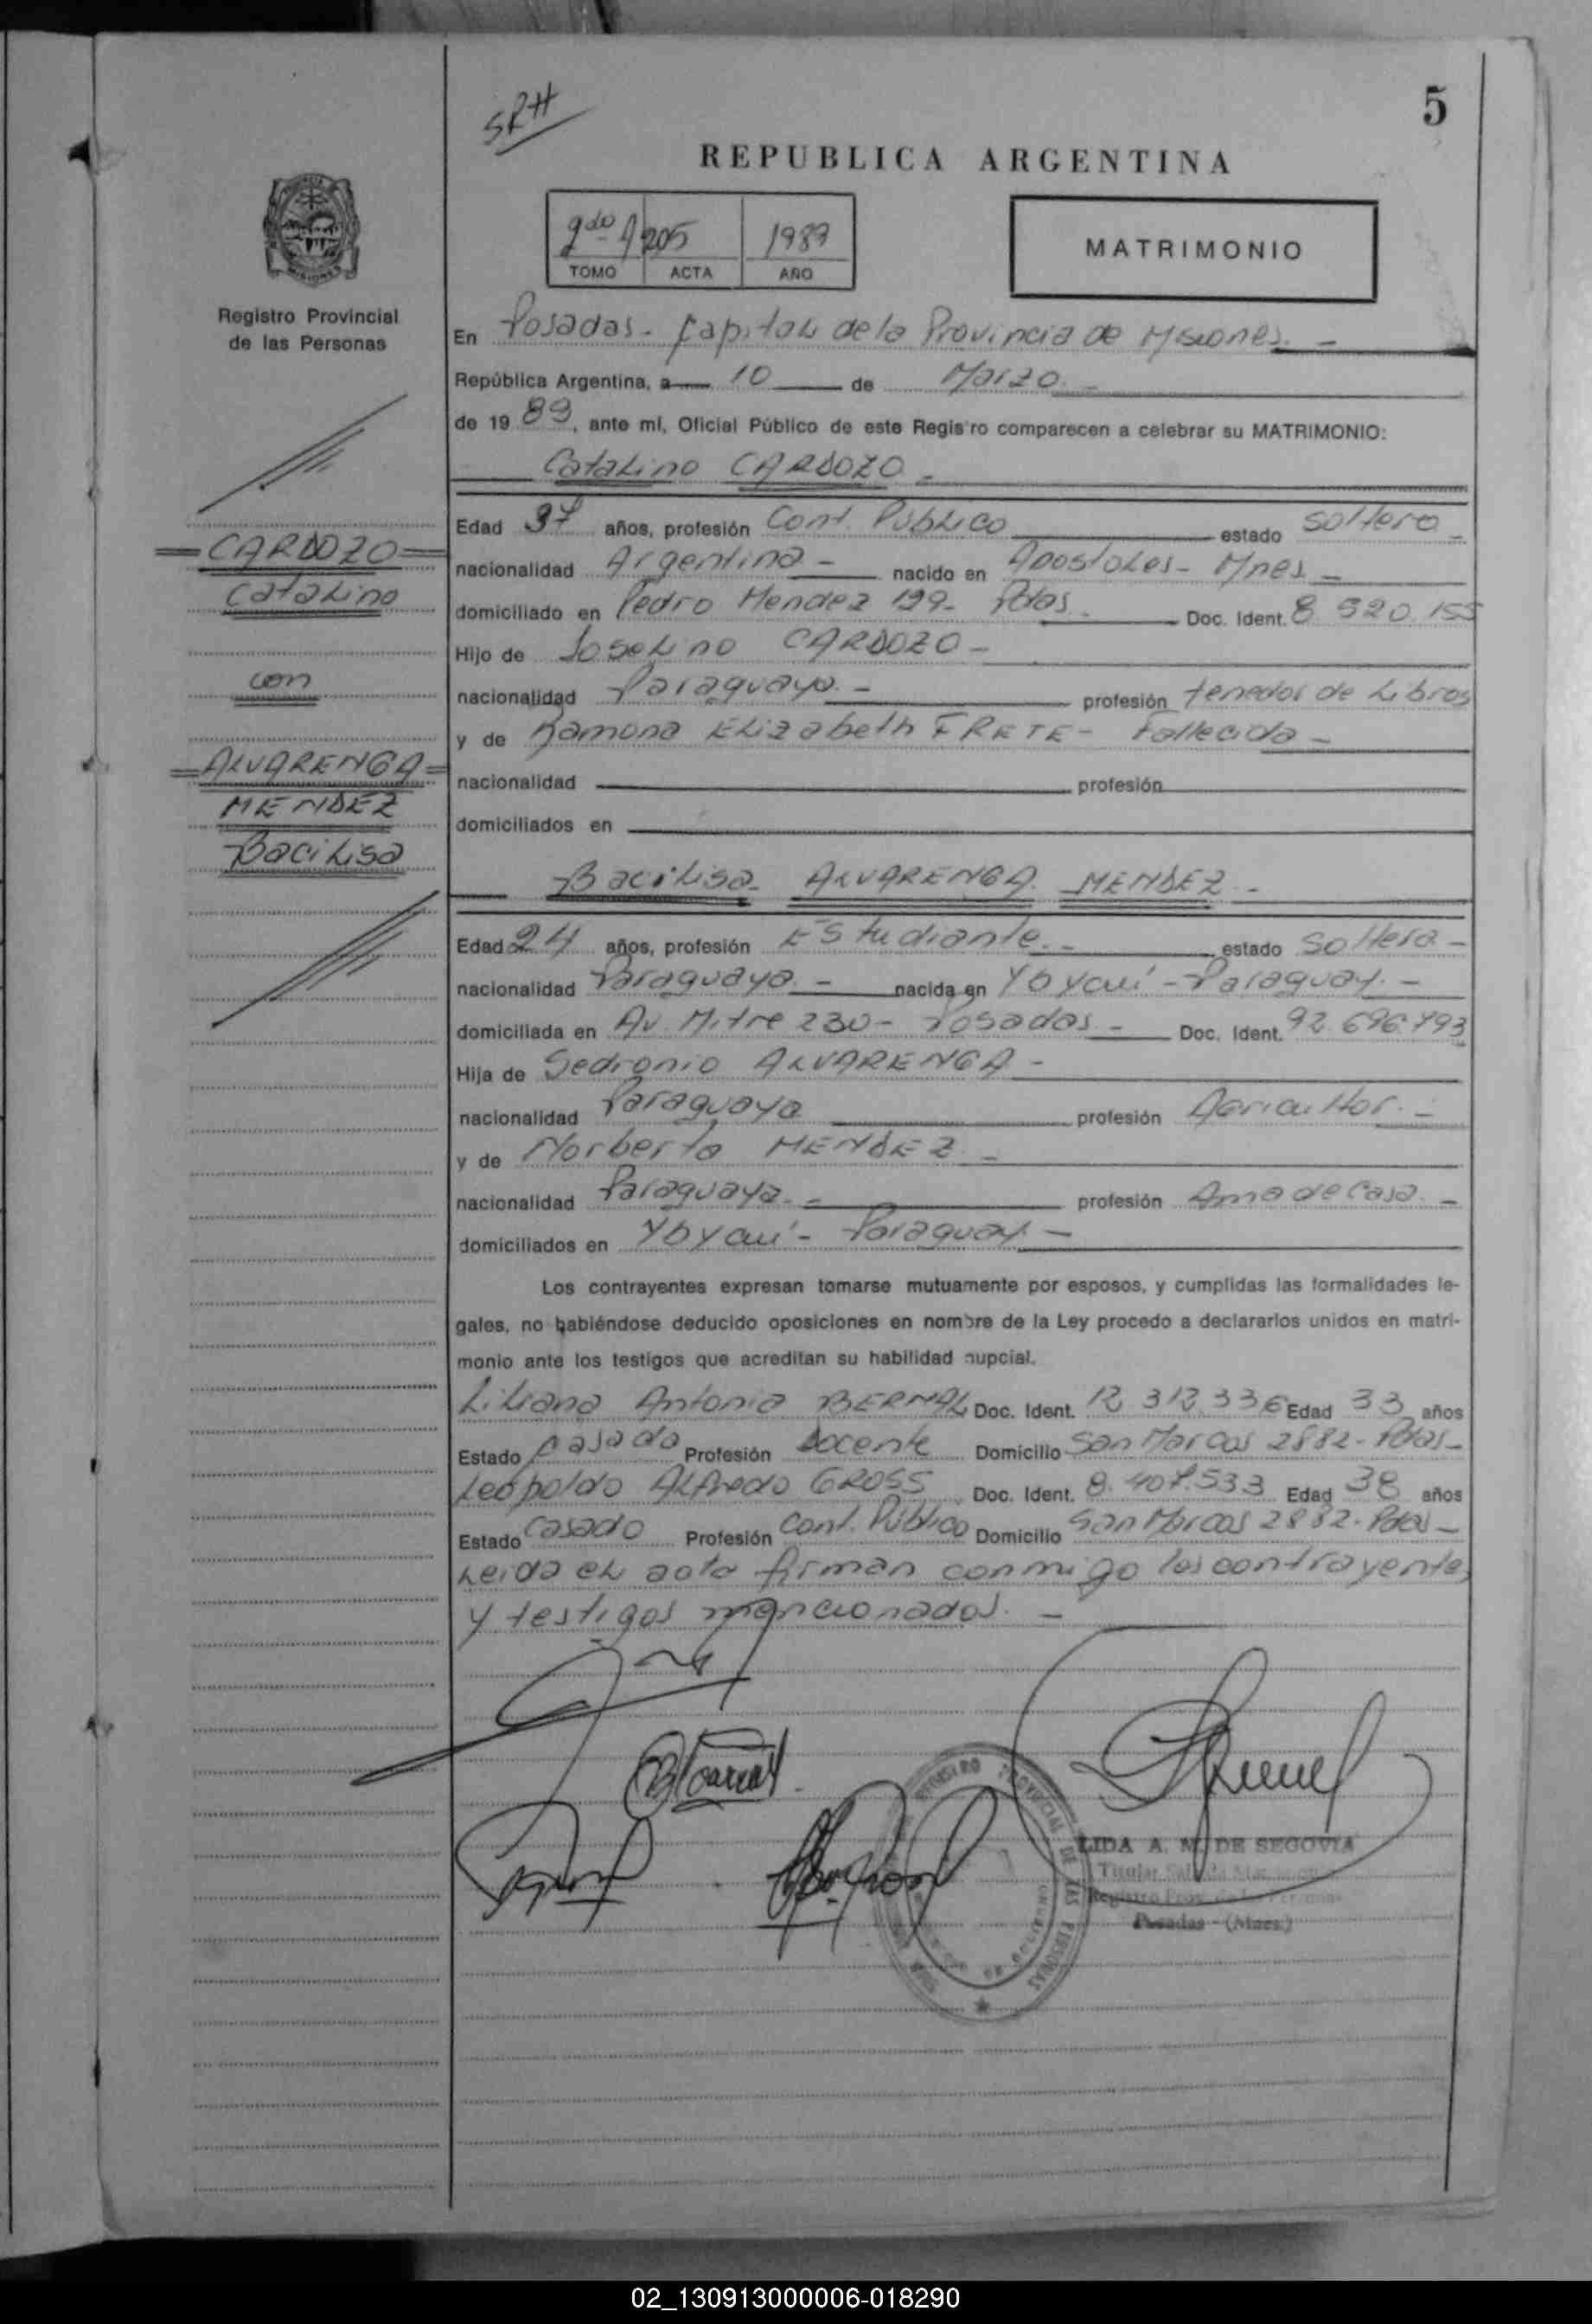 5
SRH
REPUBLICA ARGENTINA
2do A 205 1989
TOMO ACTA AÑO
MATRIMONIO
Registro Provincial
de las Personas
En Posadas - Capital de la Provincia de Misiones. -
República Argentina, a 10 de Marzo. -
de 19 89, ante mí, Oficial Público de este Registro comparecen a celebrar su MATRIMONIO:
Catalino CARDOZO -
Edad 37 años, profesión Cont. Público estado soltero -
nacionalidad Argentina - nacido en Apostoles - Mnes -
domiciliado en Pedro Mendez 199 - Pdas. - Doc. Ident. 8 520.155
Hijo de Joselino CARDOZO -
nacionalidad Paraguaya - profesión tenedor de Libros
y de Ramona Elizabeth FRETE - Fallecida -
nacionalidad profesión
domiciliados en
Bacilisa ALVARENGA MENDEZ -
Edad 24 años, profesión Estudiante. - estado soltera -
nacionalidad Paraguaya. - nacida en Ybycuí - Paraguay. -
domiciliada en Av. Mitre 230 - Posadas - Doc. Ident. 92.696.793
Hija de Sedronio ALVARENGA -
nacionalidad Paraguaya profesión Agricultor. -
y de Norberta MENDEZ. -
nacionalidad Paraguaya. - profesión Ama de Casa. -
domiciliados en Ybycuí - Paraguay -
Los contrayentes expresan tomarse mutuamente por esposos, y cumplidas las formalidades le-
gales, no habiéndose deducido oposiciones en nombre de la Ley procedo a declararlos unidos en matri-
monio ante los testigos que acreditan su habilidad nupcial.
Liliana Antonia BERNAL Doc. Ident. 12.312.336 Edad 33 años
Estado casada Profesión Docente Domicilio San Marcos 2882 - Pdas -
Leopoldo Alfredo GROSS Doc. Ident. 8.407.533 Edad 38 años
Estado Casado Profesión Cont. Público Domicilio San Marcos 2882 - Pdas -
Leida el acta firman conmigo los contrayentes
y testigos mencionados. -
CARDOZO
Catalino
con
ALVARENGA
MENDEZ
Bacilisa
REGISTRO PROVINCIAL DE LAS PERSONAS
LIDA A. M. DE SEGOVIA
Titular
Registro Prov. de las Personas
Posadas - (Mnes.)
02_130913000006-018290